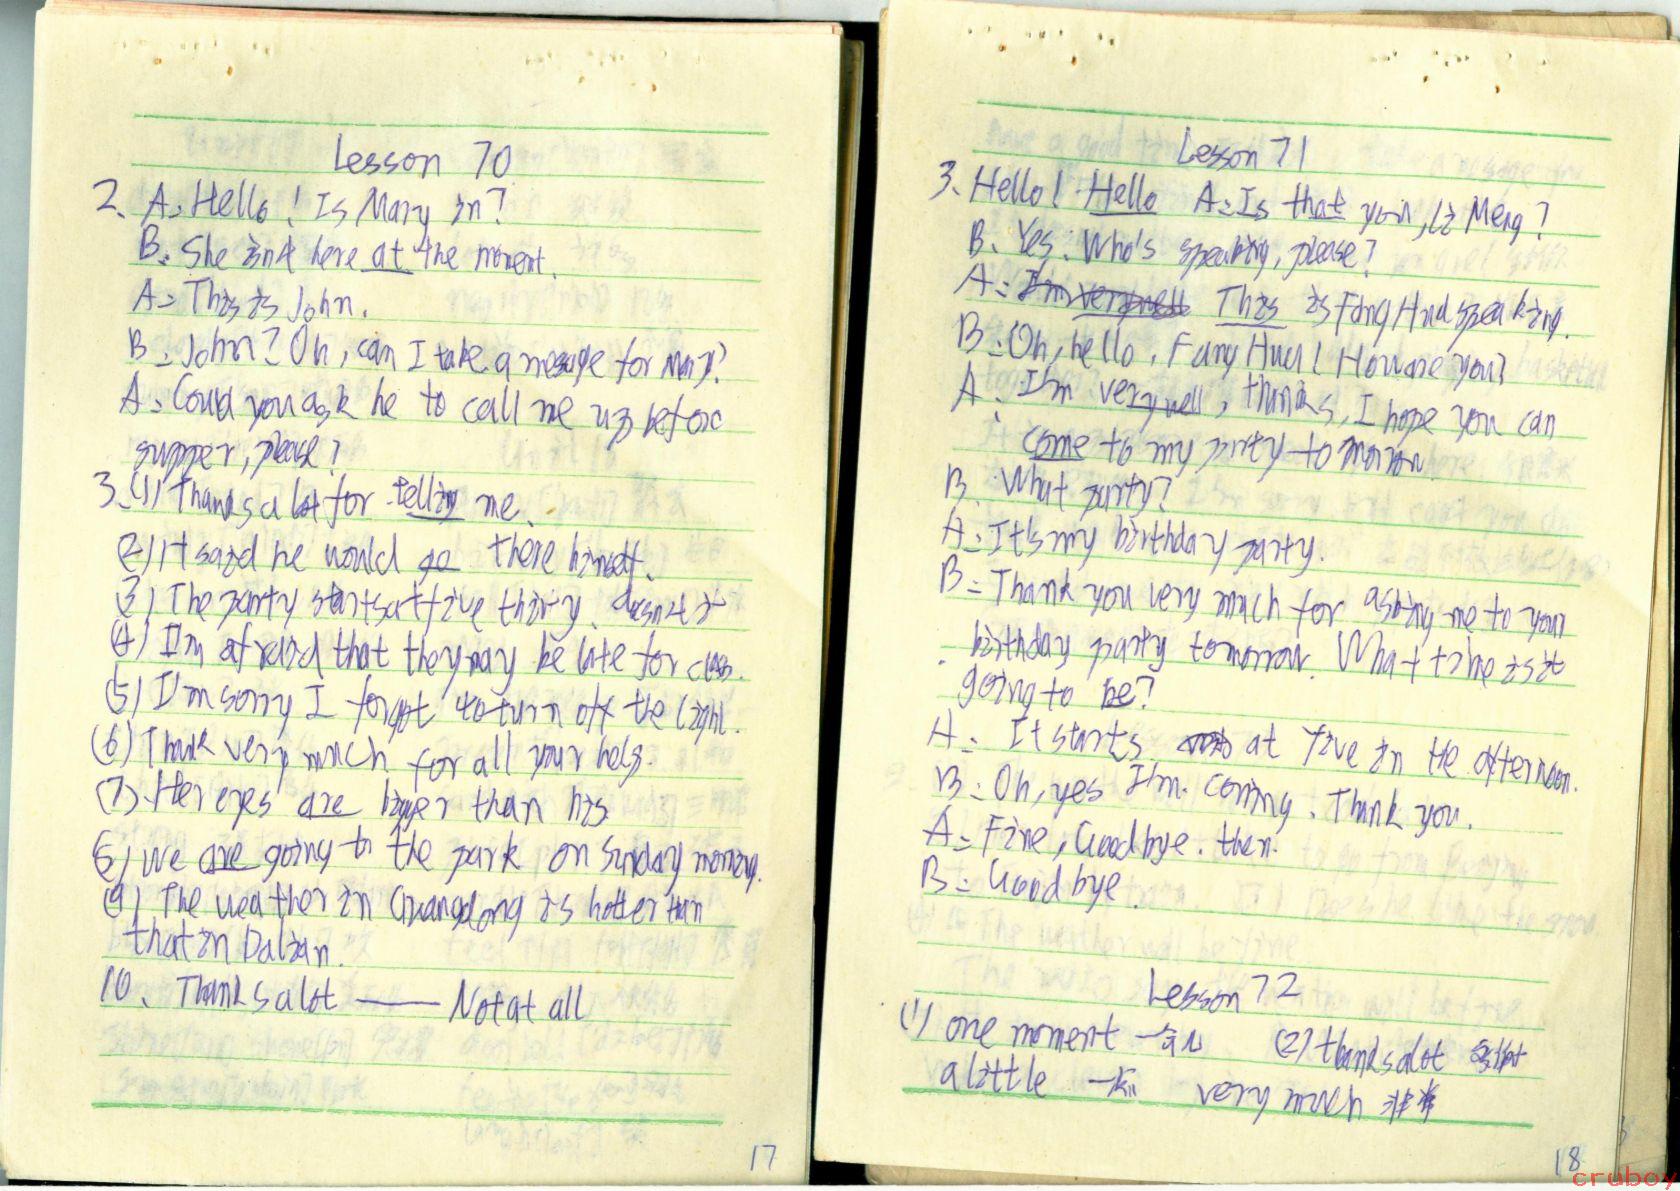 Lesson 70
2、A: Hello! Is Mary in?
B: She isn't here at the moment.
A: This is John.
B: John? Oh, can I take a message for Mary?
A: Could you ask he to call me up before
supper, please?
3、(1) Thanks a lot for telling me.
(2) It said he would go there himself.
(3) The party starts at five thirty, doesn't it
(4) I'm afraid that they may be late for class.
(5) I'm sorry I forgot to turn off the light.
(6) Thank very much for all your help.
(7) Her eyes are bigger than his
(8) We are going to the park on Sunday morning.
(9) The weather in Guangdong is hotter than
that in Dalian.
10、Thanks a lot —— Not at all
17
Lesson 71
3、Hello! Hello A: Is that you, Li Meng?
B: Yes. Who's speaking, please?
A: This is Fang Hua speaking.
B: Oh, hello, Fang Hua! How are you?
A: I'm very well, thanks, I hope you can
come to my party tomorrow
B: What party?
A: It's my birthday party.
B: Thank you very much for asking me to your
birthday party tomorrow. What time is it
going to be?
A: It starts at five in the afternoon.
B: Oh, yes I'm coming. Thank you.
A: Fine, Goodbye. then.
B: Goodbye.
Lesson 72
(1) one moment 一会儿 (2) thanks a lot
a little 一点 very much 非常
18
cruboy